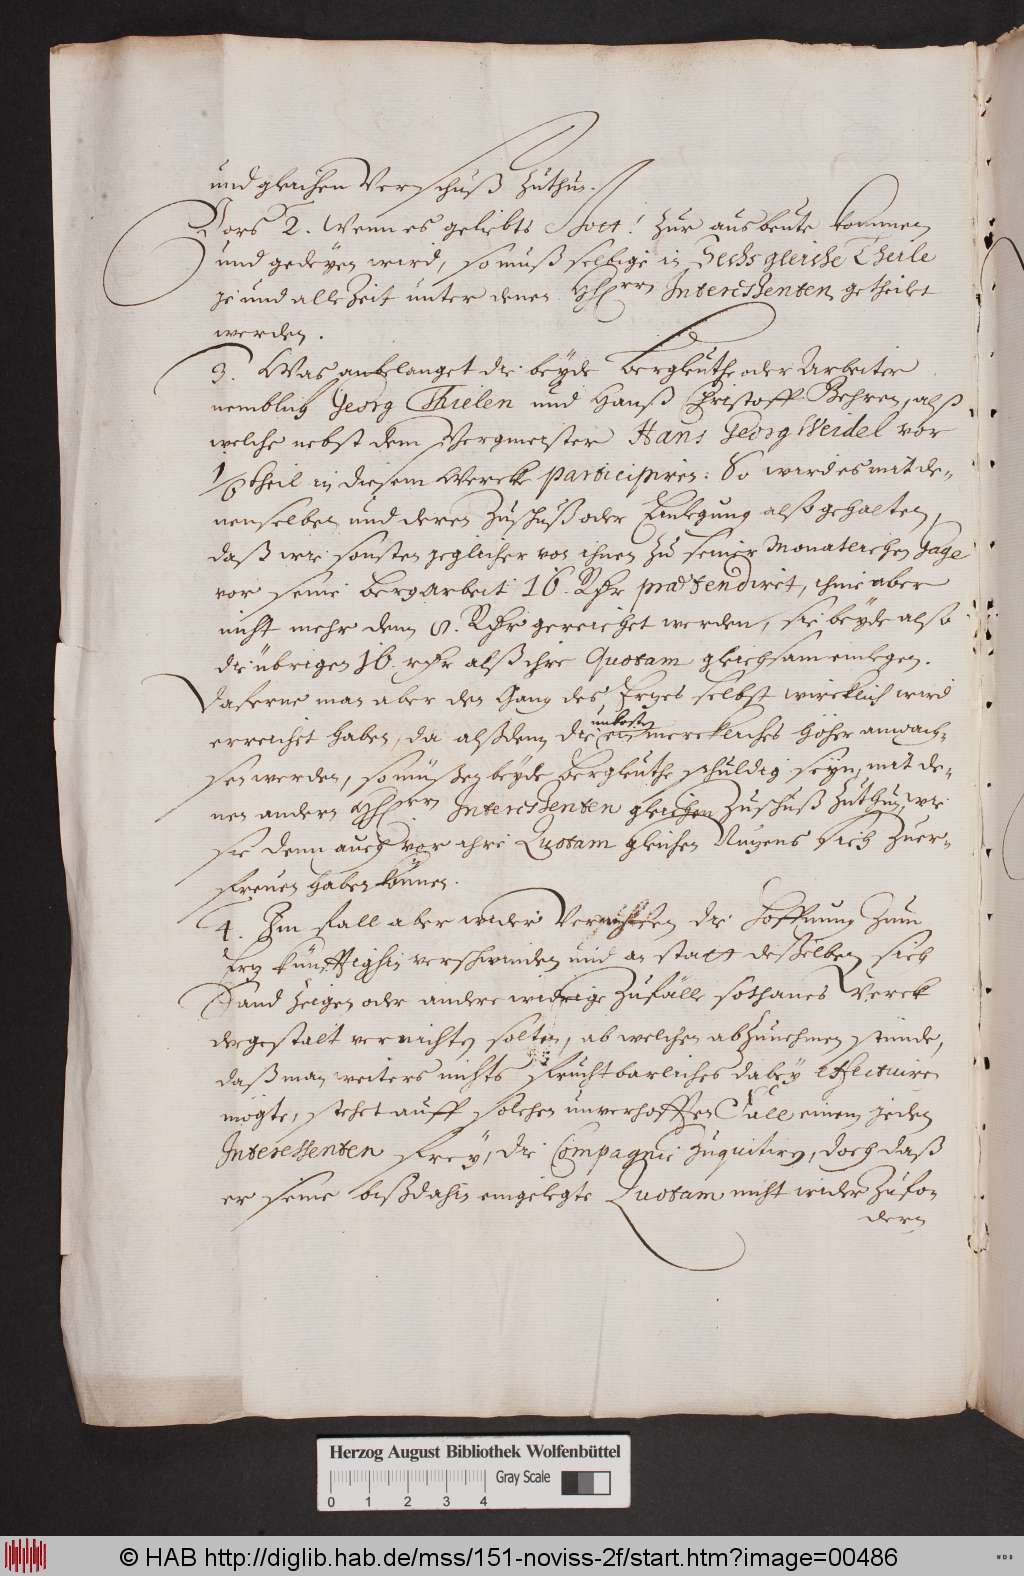 und gleichen Verschuß zuthun.
Vors 2. Wenn es geliebts Gott! zur ausbeute kommen
und gedeyen wird, so muß selbige in Sechs gleiche Theile
je und alle Zeit unter denen HhErrn Interessenten getheilet
werden.
3. Was anbelanget die beyde Bergleuthe oder Arbeiter
nemblich Georg Thielen und Hanß Christoff Behren, alß
welche nebst dem Bergmeister Hans Georg Seidel vor
1/6 theil in diesem Wercke participiren: So wird es mit de-
nenselben und deren Zuschuß oder Einlegung also gehalten,
daß wie sonsten jeglicher von ihnen zu seiner Monatlichen Gage
vor seine bergArbeit 16. Rthr prætendiret, ihme aber
nicht mehr denn 8. Rthr gereichet werden, sie beyde also
die übrigen 16. rthr alß ihre Quotam gleichsam einlegen.
Daferne man aber den Gang des Erzes selbst wircklich wird
erreichet haben, da alßdenn die unkosten ein merckliches höher anwach-
sen werden, so müßen beyde bergleuthe schuldig seyn, mit de-
nen andern HhErrn Interessenten gleichen Zuschuß zuthun, wie
sie denn auch vor ihre Quotam gleichen Nuzens sich zuer-
freuen haben können.
4. Im fall aber wider Vermuhten die Hoffnung zum
Erz künfftighin verschwinden und an statt deßelben sich
Sand zeigen oder andere widrige Zufälle sothanes Werck
dergestalt vernichten solten, ab welchen abzunehmen stünde,
daß man weiters nichts fruchtbarliches dabey effectuiren
mögte, stehet auff solchen unverhofften Fall einem jeden
Interessenten frey, die Compagnie zuquitiren, doch daß
er seine bißdahin eingelegte Quotam nicht wider zufo-
dern
Herzog August Bibliothek Wolfenbüttel
0 1 2 3 4 Gray Scale
© HAB http://diglib.hab.de/mss/151-noviss-2f/start.htm?image=00486